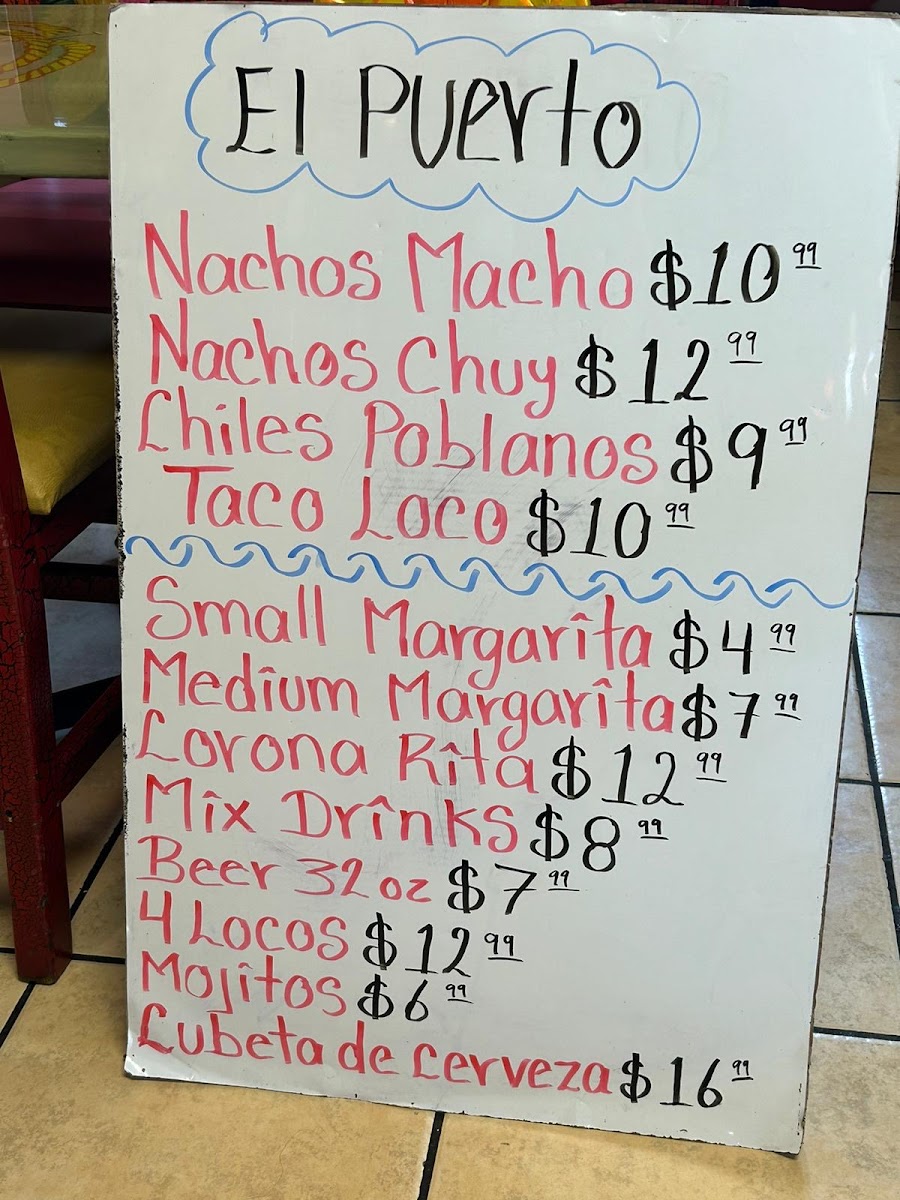 El Puerto
Nachos Macho $10.99
Nachos Chuy $12.99
Chiles Poblanos $9.99
Taco Loco $10.99
Small Margarita $4.99
Medium Margarita $7.99
Corona Rita $12.99
Mix Drinks $8.99
Beer 32 oz $7.99
4 Locos $12.99
Mojitos $6.99
Cubeta de Cerveza $16.99